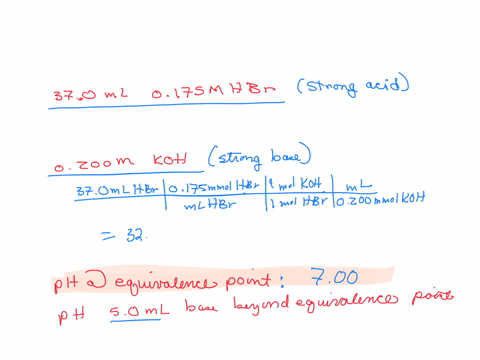 37.0 mL 0.175M HBr (strong acid)
0.200 m KOH (strong base)
37.0 mL HBr | 0.175 mmol HBr | 1 mol KOH | mL
mL HBr | 1 mol HBr | 0.200 mmol KOH
= 32.
pH @ equivalence point : 7.00
pH 5.0 mL base beyond equivalence point